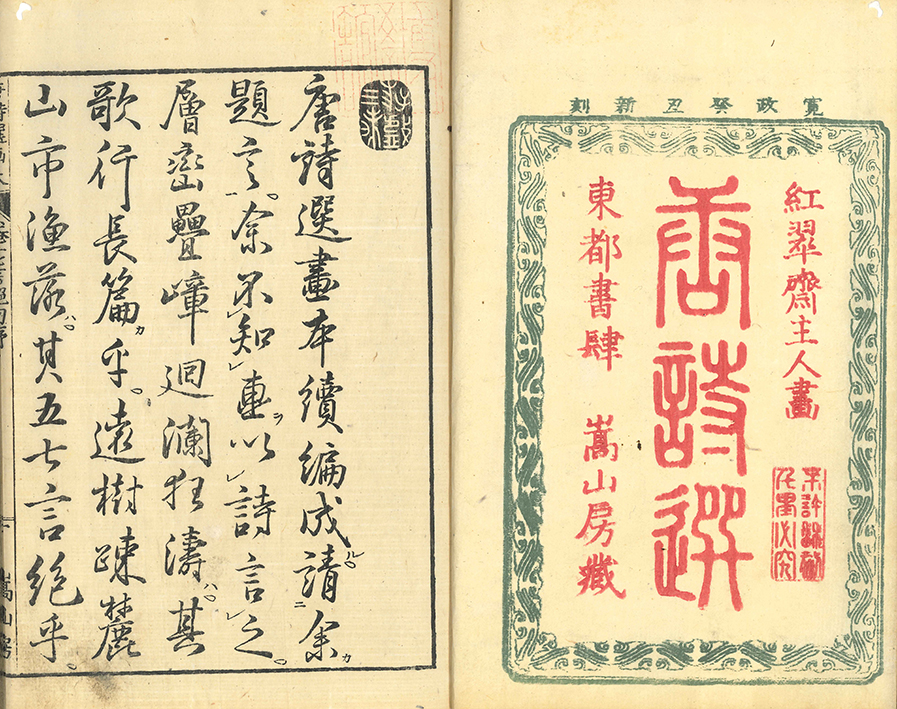 寛政癸丑新刻
紅翠齋主人畫
唐詩選
東都書肆 嵩山房藏
唐詩選畫本續編成ル。請ニ余カ
題言。余不知畫ヲ以詩言之。
層巒疊嶂廻瀾狂濤ハ。其
歌行長篇カ乎。遠樹疎麓
山市漁落ハ。其五七言絶乎。
嵩山房